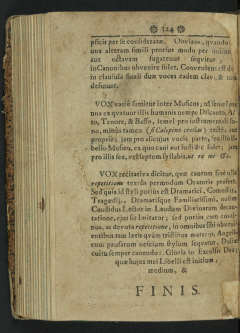 324
psicit per se considerata. Obviam, quando
una alteram simili prorsus modo per
aut octavam fugat sequitur
in Canonibus obvenire solet.
in clausula finali duæ voces eadem clav,
desinunt.
VOX variè sumitur inter Musicos; nã semel pro
una ex quatuor illis humanis nempe Discanto, Al-
to, Tenore, & Basso, semel pro instrumentali so-
no, minùs tamen (si Calepino credas) rectè, aut
propriè; jam pro alicujus vocis parte,
bello Musico, ex quo cani aut
pro illis sex, vel septem syllabis, ut re mi
VOX recitativa dicitur, quæ cantum sine ulla
repetitione textûs permodum Oratoris profert.
Sed quia id styli potius est Dramatici, Comœdis,
Tragœdis, Dramatisque Familiarissimi, autem
Candidus Lector in Laudum Divinarum decan-
tatione, ejus sit Imitator; sed potius cum conti-
nua, ac devota repetitione, in omnibus sibi obveni-
entibus tam lætæ quàm tristibus materiis, Angeli-
cum pausarum nescium stylum sequatur,
cultu semper canendo: Gloria in Excelsis Deo;
quæ hujus mei Libelli est initium,
medium, &
FINIS.